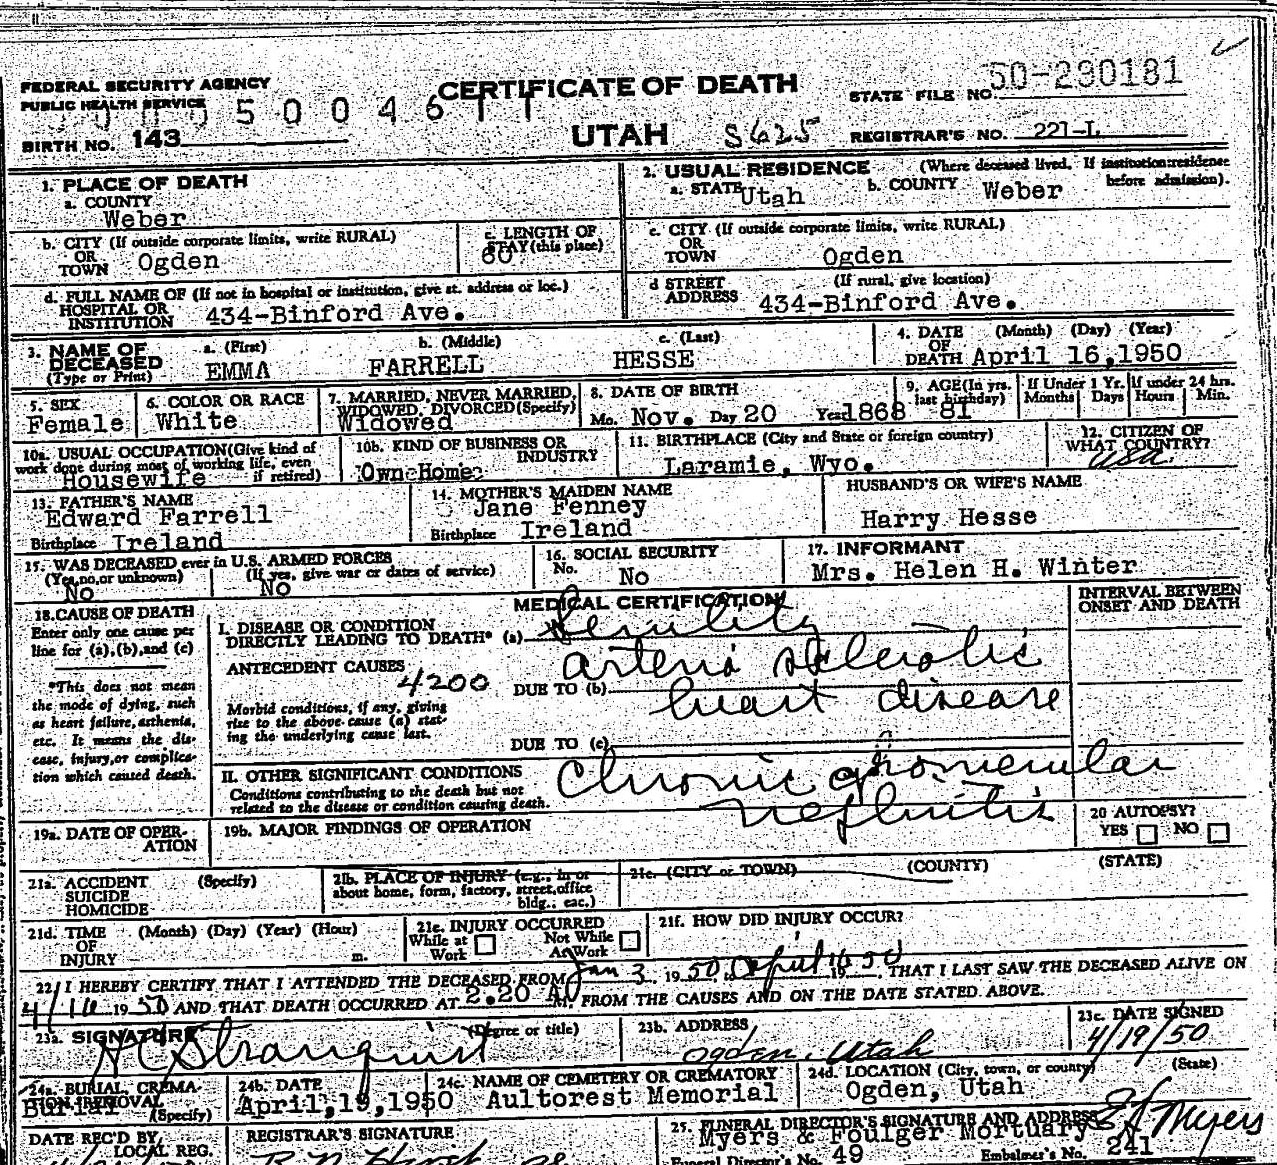 FEDERAL SECURITY AGENCY
PUBLIC HEALTH SERVICE
BIRTH NO. 143
CERTIFICATE OF DEATH
UTAH S625
STATE FILE NO. 50-290181
REGISTRAR'S NO. 221-L
1. PLACE OF DEATH
a. COUNTY
Weber
2. USUAL RESIDENCE (Where deceased lived. If institution: residence before admission).
a. STATE Utah b. COUNTY Weber
b. CITY (If outside corporate limits, write RURAL)
OR
TOWN Ogden
c. LENGTH OF
STAY (this place)
60
c. CITY (If outside corporate limits, write RURAL)
OR
TOWN Ogden
d. FULL NAME OF (If not in hospital or institution, give st. address or loc.)
HOSPITAL OR
INSTITUTION 434-Binford Ave.
d STREET (If rural, give location)
ADDRESS 434-Binford Ave.
3. NAME OF
DECEASED
(Type or Print)
a. (First) b. (Middle) c. (Last)
EMMA FARRELL HESSE
4. DATE (Month) (Day) (Year)
OF
DEATH April 16,1950
5. SEX
Female
6. COLOR OR RACE
White
7. MARRIED, NEVER MARRIED,
WIDOWED, DIVORCED (Specify)
Widowed
8. DATE OF BIRTH
Mo. Nov. Day 20 Year 1868
9. AGE (In yrs.
last birthday)
81
If Under 1 Yr.
Months Days
If under 24 hrs.
Hours Min.
10a. USUAL OCCUPATION (Give kind of
work done during most of working life, even
if retired)
Housewife
10b. KIND OF BUSINESS OR
INDUSTRY
Own Home
11. BIRTHPLACE (City and State or foreign country)
Laramie, Wyo.
12. CITIZEN OF
WHAT COUNTRY?
USA.
13. FATHER'S NAME
Edward Farrell
Birthplace Ireland
14. MOTHER'S MAIDEN NAME
Jane Fenney
Birthplace Ireland
HUSBAND'S OR WIFE'S NAME
Harry Hesse
15. WAS DECEASED ever in U.S. ARMED FORCES
(Yes, no, or unknown) (If yes, give war or dates of service)
No No
16. SOCIAL SECURITY
No. No
17. INFORMANT
Mrs. Helen H. Winter
18. CAUSE OF DEATH
Enter only one cause per
line for (a), (b), and (c)
*This does not mean
the mode of dying, such
as heart failure, asthenia,
etc. It means the dis-
ease, injury, or complica-
tion which caused death.
MEDICAL CERTIFICATION
INTERVAL BETWEEN
ONSET AND DEATH
I. DISEASE OR CONDITION
DIRECTLY LEADING TO DEATH* (a) Senility
ANTECEDENT CAUSES
4200
DUE TO (b) arterio sclerotic
heart disease
Morbid conditions, if any, giving
rise to the above cause (a) stat-
ing the underlying cause last.
DUE TO (c)
II. OTHER SIGNIFICANT CONDITIONS
Conditions contributing to the death but not
related to the disease or condition causing death.
Chronic glomerular
nephritis
19a. DATE OF OPER-
ATION
19b. MAJOR FINDINGS OF OPERATION
20 AUTOPSY?
YES NO
21a. ACCIDENT (Specify)
SUICIDE
HOMICIDE
21b. PLACE OF INJURY (e.g., in or
about home, form, factory, street, office
bldg., eac.)
21c. (CITY or TOWN) (COUNTY) (STATE)
21d. TIME (Month) (Day) (Year) (Hour)
OF
INJURY m.
21e. INJURY OCCURRED
While at Work Not While At Work
21f. HOW DID INJURY OCCUR?
22. I HEREBY CERTIFY THAT I ATTENDED THE DECEASED FROM Jan 3 1950 April 16 1950 THAT I LAST SAW THE DECEASED ALIVE ON
4/16 1950 AND THAT DEATH OCCURRED AT 2:20 A M. FROM THE CAUSES AND ON THE DATE STATED ABOVE.
23a. SIGNATURE (Degree or title)
HC Stranquist
23b. ADDRESS
Ogden, Utah
23c. DATE SIGNED
4/19/50
24a. BURIAL, CREMA-
TION REMOVAL
(Specify)
Burial
24b. DATE
April,19,1950
24c. NAME OF CEMETERY OR CREMATORY
Aultorest Memorial
24d. LOCATION (City, town, or county) (State)
Ogden, Utah
DATE REC'D BY
LOCAL REG.
REGISTRAR'S SIGNATURE
25. FUNERAL DIRECTOR'S SIGNATURE AND ADDRESS
Myers & Foulger Mortuary EJ Myers
Funeral Director's No. 49 Embalmer's No. 241